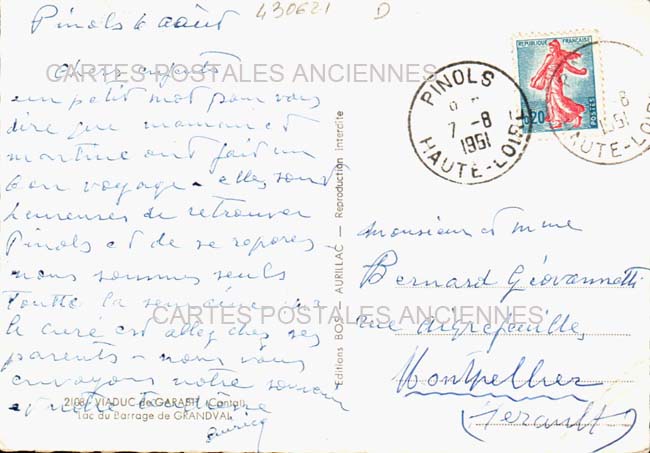 Pinols 6 août
430621 D
Chers enfants
un petit mot pour vous
dire que maman et
martine ont fait un
bon voyage - elles sont
heureuses de retrouver
Pinols et de se reposer
nous sommes seuls
toutte la semaine
le curé est allé chez ses
parents - nous vous
envoyons notre
et notre
CARTES POSTALES ANCIENNES
CARTES POSTALES ANCIENNES
2108 - VIADUC de GARABIT (Cantal)
Lac du Barrage de GRANDVAL
Editions BOS - AURILLAC — Reproduction Interdite
PINOLS
7 -8
1961
HAUTE-LOIRE
REPUBLIQUE FRANÇAISE
0,20
POSTES
-8
1961
HAUTE-LOIRE
monsieur et mme
Bernard Géovannetti
rue aigrefeuilles
Montpellier
(Herault)